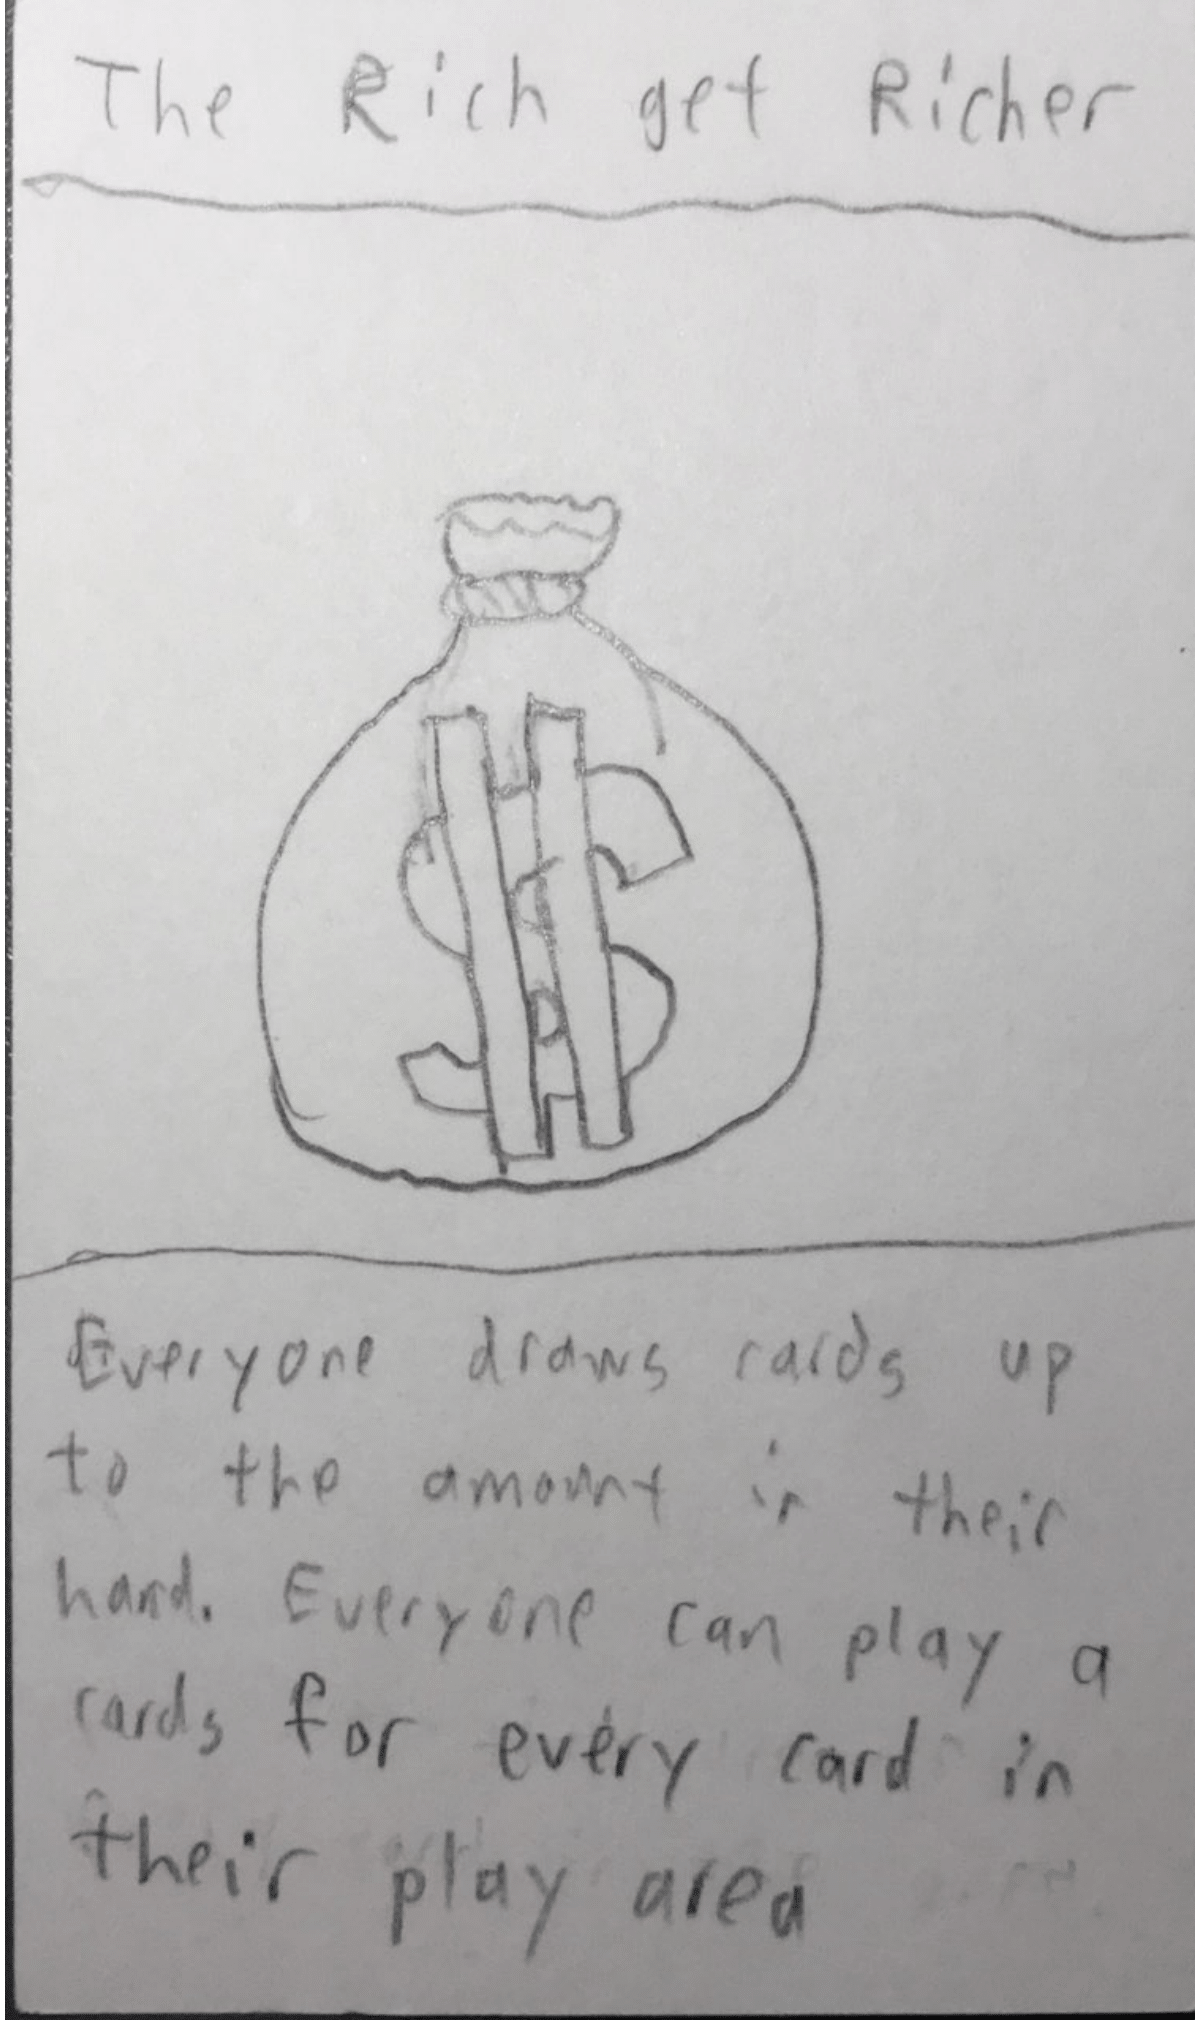 The Rich get Richer
$
Everyone draws cards up
to the amount in their
hand. Everyone can play a
cards for every card in
their play area